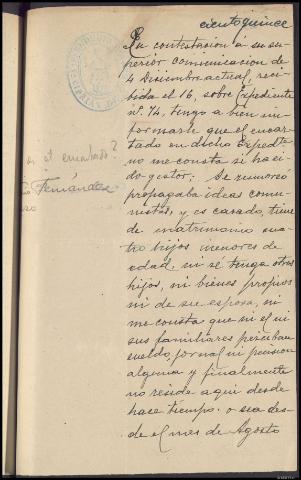 ciento quince
En contestación á su su-
perior comunicacion de
4 Diciembre actual, reci-
bida el 16, sobre Expediente
nº. 74, tengo a bien in-
formarle que el encar-
tado en dicho Expdte
no me consta si ha si-
do gestor; Se rumoreó
propagaba ideas comu-
nistas, y es casado, tiene
de matrimonio cua-
tro hijos menores de
edad, ni se tenga otros
hijos, ni bienes propios
ni de su esposa, ni
me consta que ni el ni
sus familiares perciban
sueldo, jornal ni pension
alguna y finalmente
no reside aqui desde
hace tiempo. o sea des-
de el mes de Agosto
el encartado?
Fernández